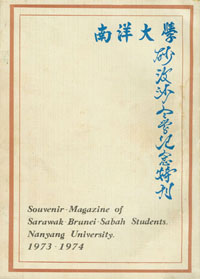 南洋大學
砂 沙 紀念特刊
Souvenir-Magazine of
Sarawak-Brunei-Sabah Students.
Nanyang University.
1973-1974